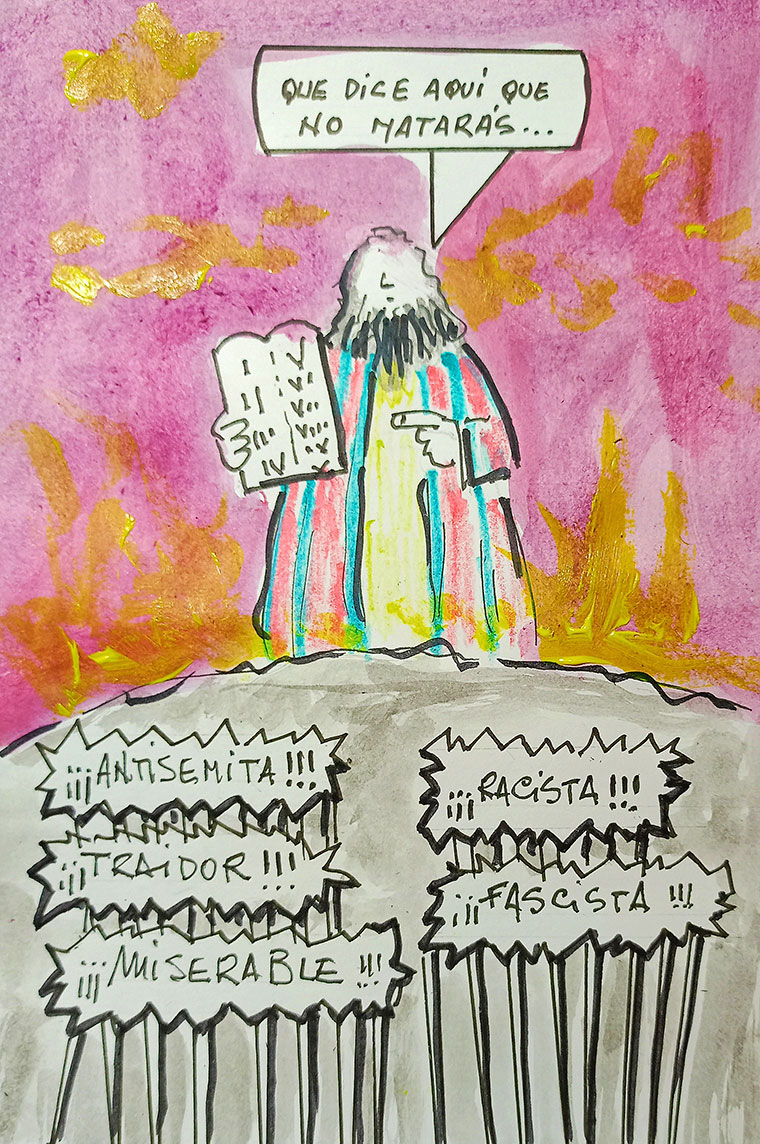 QUE DICE AQUÍ QUE
NO MATARÁS...
I
II
III
IV
V
VI
VII
VIII
IX
X
¡¡¡ANTISEMITA!!!
¡¡¡TRAIDOR!!!
¡¡¡MISERABLE!!!
¡¡¡RACISTA!!!
¡¡¡FASCISTA!!!